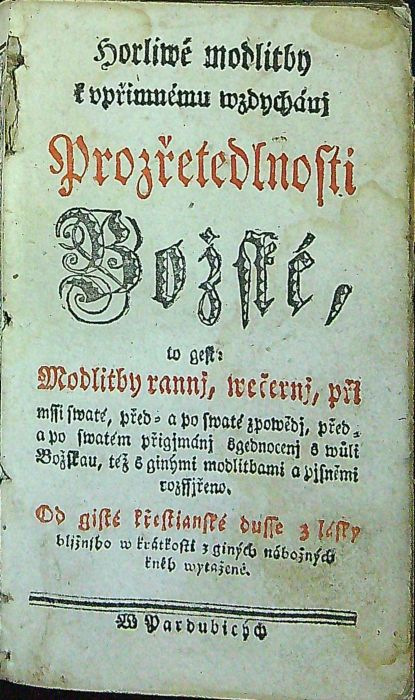 Horliwé modlitby
k vpřimnému wzdychánj
Prozřetedlnosti
Božské,
to gest:
Modlitby rannj, wečernj, při
mssi swaté, před- a po swaté zpowědj, před-
a po swatém přigjmánj sgednocenj s wůli
Božskau, též s ginými modlitbami a pjsněmi
rozssjřeno.
Od gisté křestianské dusse z lásky
bližního w krátkosti z giných nábožných
kněh wytažené.
W Pardubicých